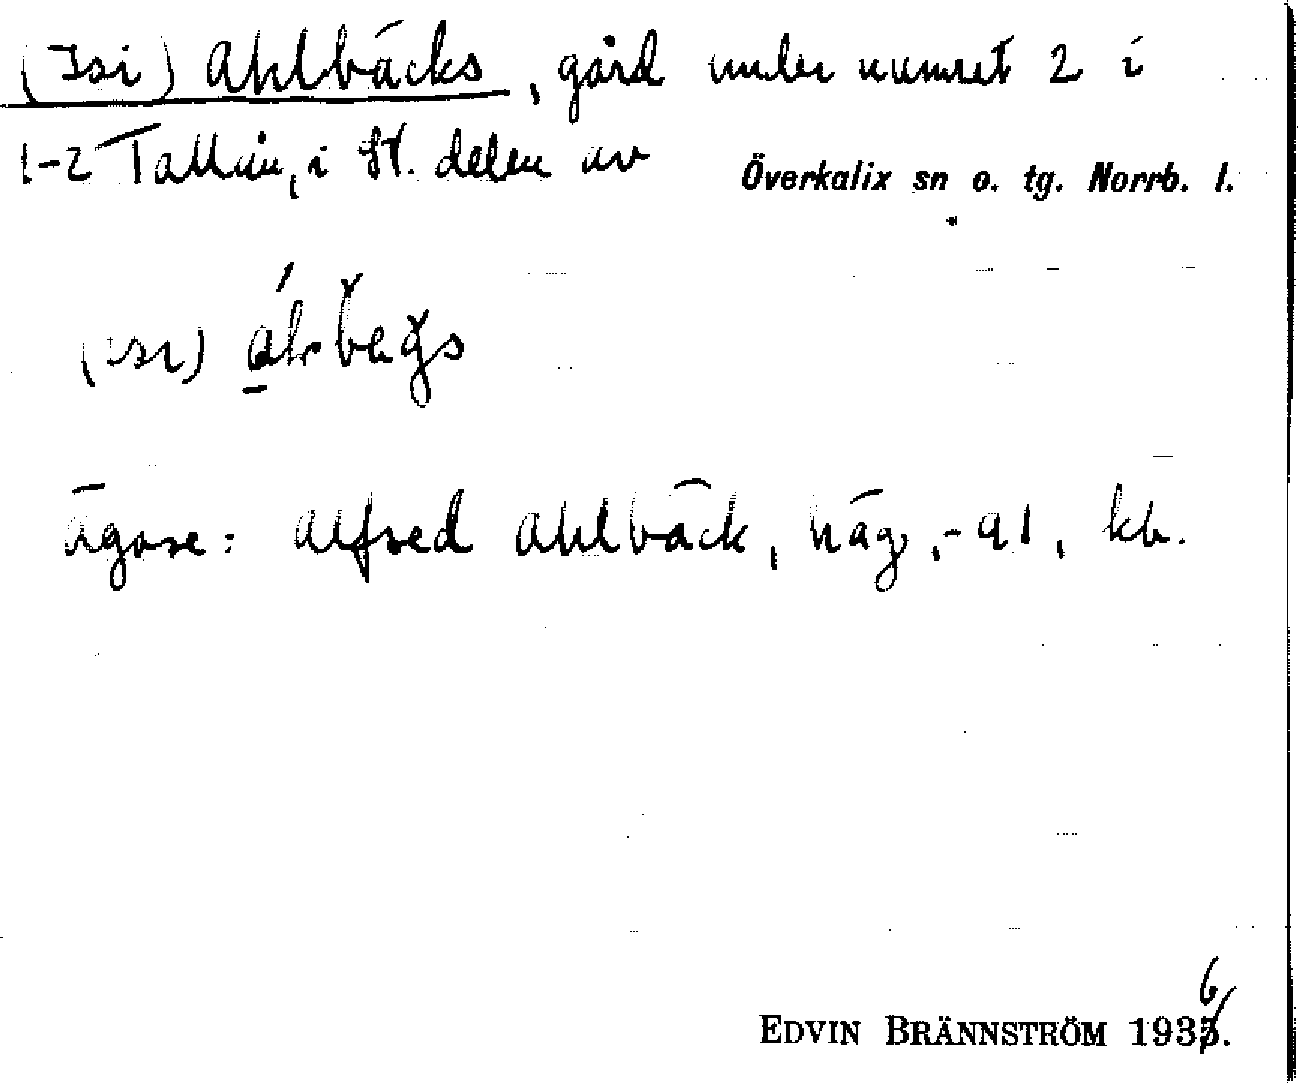 (Isi) Ahlbäcks, gård under numret 2 i
1-2 Tallån, i st. delen av Överkalix sn o. tg. Norrb. l.
(ɪsɪ)
Ägare: Alfred Ahlbäck, häg, -91, kb.
6
EDVIN BRÄNNSTRÖM 1935.